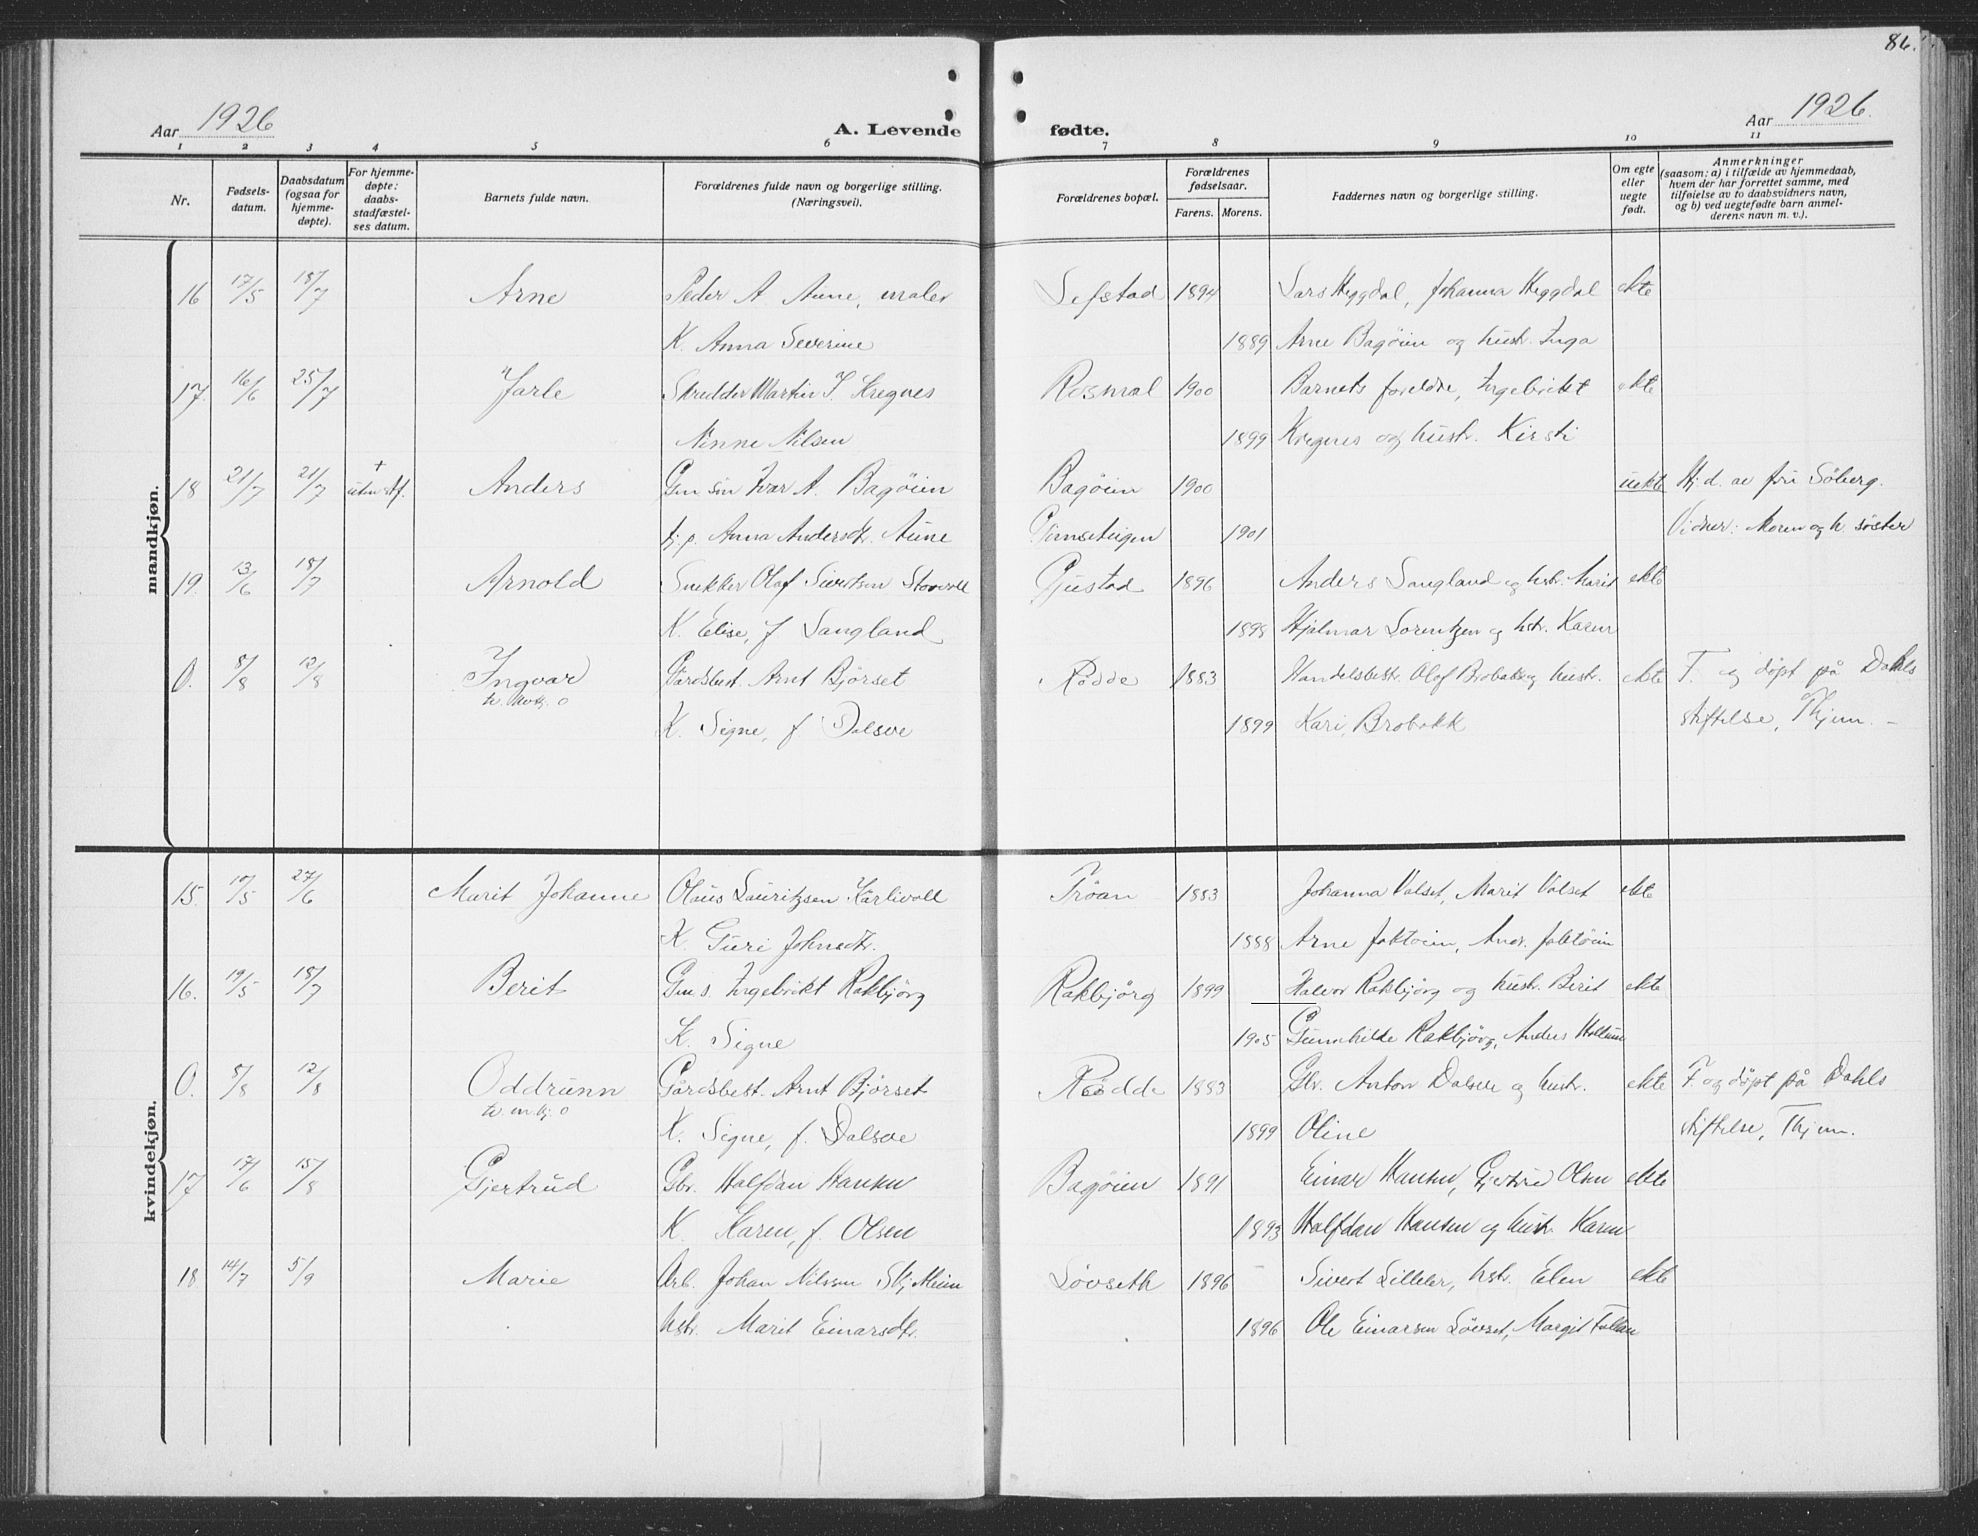 86.
Aar 1926
A. Levende fødte.
Aar 1926.
1 2 3 4 5 6 7 8 9 10 11
Nr.
Fødsels-
datum.
Daabsdatum
(ogsaa for
hjemme-
døpte).
For hjemme-
døpte:
daabs-
stadfæstel-
ses datum.
Barnets fulde navn.
Forældrenes fulde navn og borgerlige stilling.
(Næringsvei).
Forældrenes bopæl.
Forældrenes
fødselsaar.
Farens. Morens.
Faddernes navn og borgerlige stilling.
Om egte
eller
uegte
født.
Anmerkninger
(saasom: a) i tilfælde av hjemmedaab,
hvem der har forrettet samme, med
tilføielse av to daabsvidners navn,
og b) ved uegtefødte barn anmel-
derens navn m. v.).
mandkjøn.
16 17/5 18/7 Arne Peder A. Aune, maler Sefstad 1894 Lars Heggdal, Johanna Heggdal ekte
K. Anna Severine 1889 Arne Bagöien og hustr. Inga
17. 16/6 25/7 Jarle Skredder Martin I. Kregnes Rosmal 1900 Barnets foreldre, Ingebrikt ekte
Ninne Nilsen 1899 Kregnes og hustr. Kirsti
18 21/7 21/7 + uten stf. Anders Gm sön Ivar A. Bagöien Bagöien 1900 uekte Hj. d. av fru Söberg.
tj. p. Anna Andersdtr. Aune 1901 Vidner: Moren og h. söster
19. 13/6 18/7 Arnold Snekker Olaf Sivertsen Storvoll Gjustad 1896 Anders Langland og hstr. Marit ekte
K. Elise, f Langland 1898 Hjalmar Lorentzen og hstr. Karen
0. 8/8 12/8 Ingvar Gårdsbest. Arnt Bjórset Rödde 1883 Handelsbestr. Olaf Brobakk og hustr. ekte F. og döpt på Dahls
K. Signe, f Dalsve 1899 Kari, Brobakk stiftelse, Thjem. –
kvindekjøn.
15. 10/5 27/6 Marit Johanne Olaus Lauritzsen Kärlivoll Tröan 1883 Johanna Valset, Marit Valset ekte
K. Guri Johnsdtr. 1888 Arne Joktöien, Andr. Joktöien
16. 19/5 18/7 Berit Gm s. Ingebrikt Rakbjörg Rakbjörg 1899 Halvor Rakbjörg og hustr. Berit ekte
K. Signe 1905 Gunnhilde Rakbjörg, Anders Hollum
0. 8/8 12/8 Oddrunn Gårdsbest. Arnt Bjórset Rödde 1883 Gbr. Anton Dalsve og hustr. ekte F. og döpt på Dahls
K. Signe, f. Dalsve 1899 Oline stiftelse, Thjem.
17 17/6 15/8 Gjertrud Gbr. Halfdan Hansen Bagöien 1891 Einar Hansen, Gjertrud Olsen ekte
K. Karen, f. Olsen 1893 Halfdan Hansen og hustr. Karen
18 14/7 5/9 Marie Arb. Johan Nilssen Lövseth 1896 Sivert Lilleler, hstr. Elen ekte
hstr. Marit Einarsdtr. 1896 Ole Einarsen Lövset, Margit